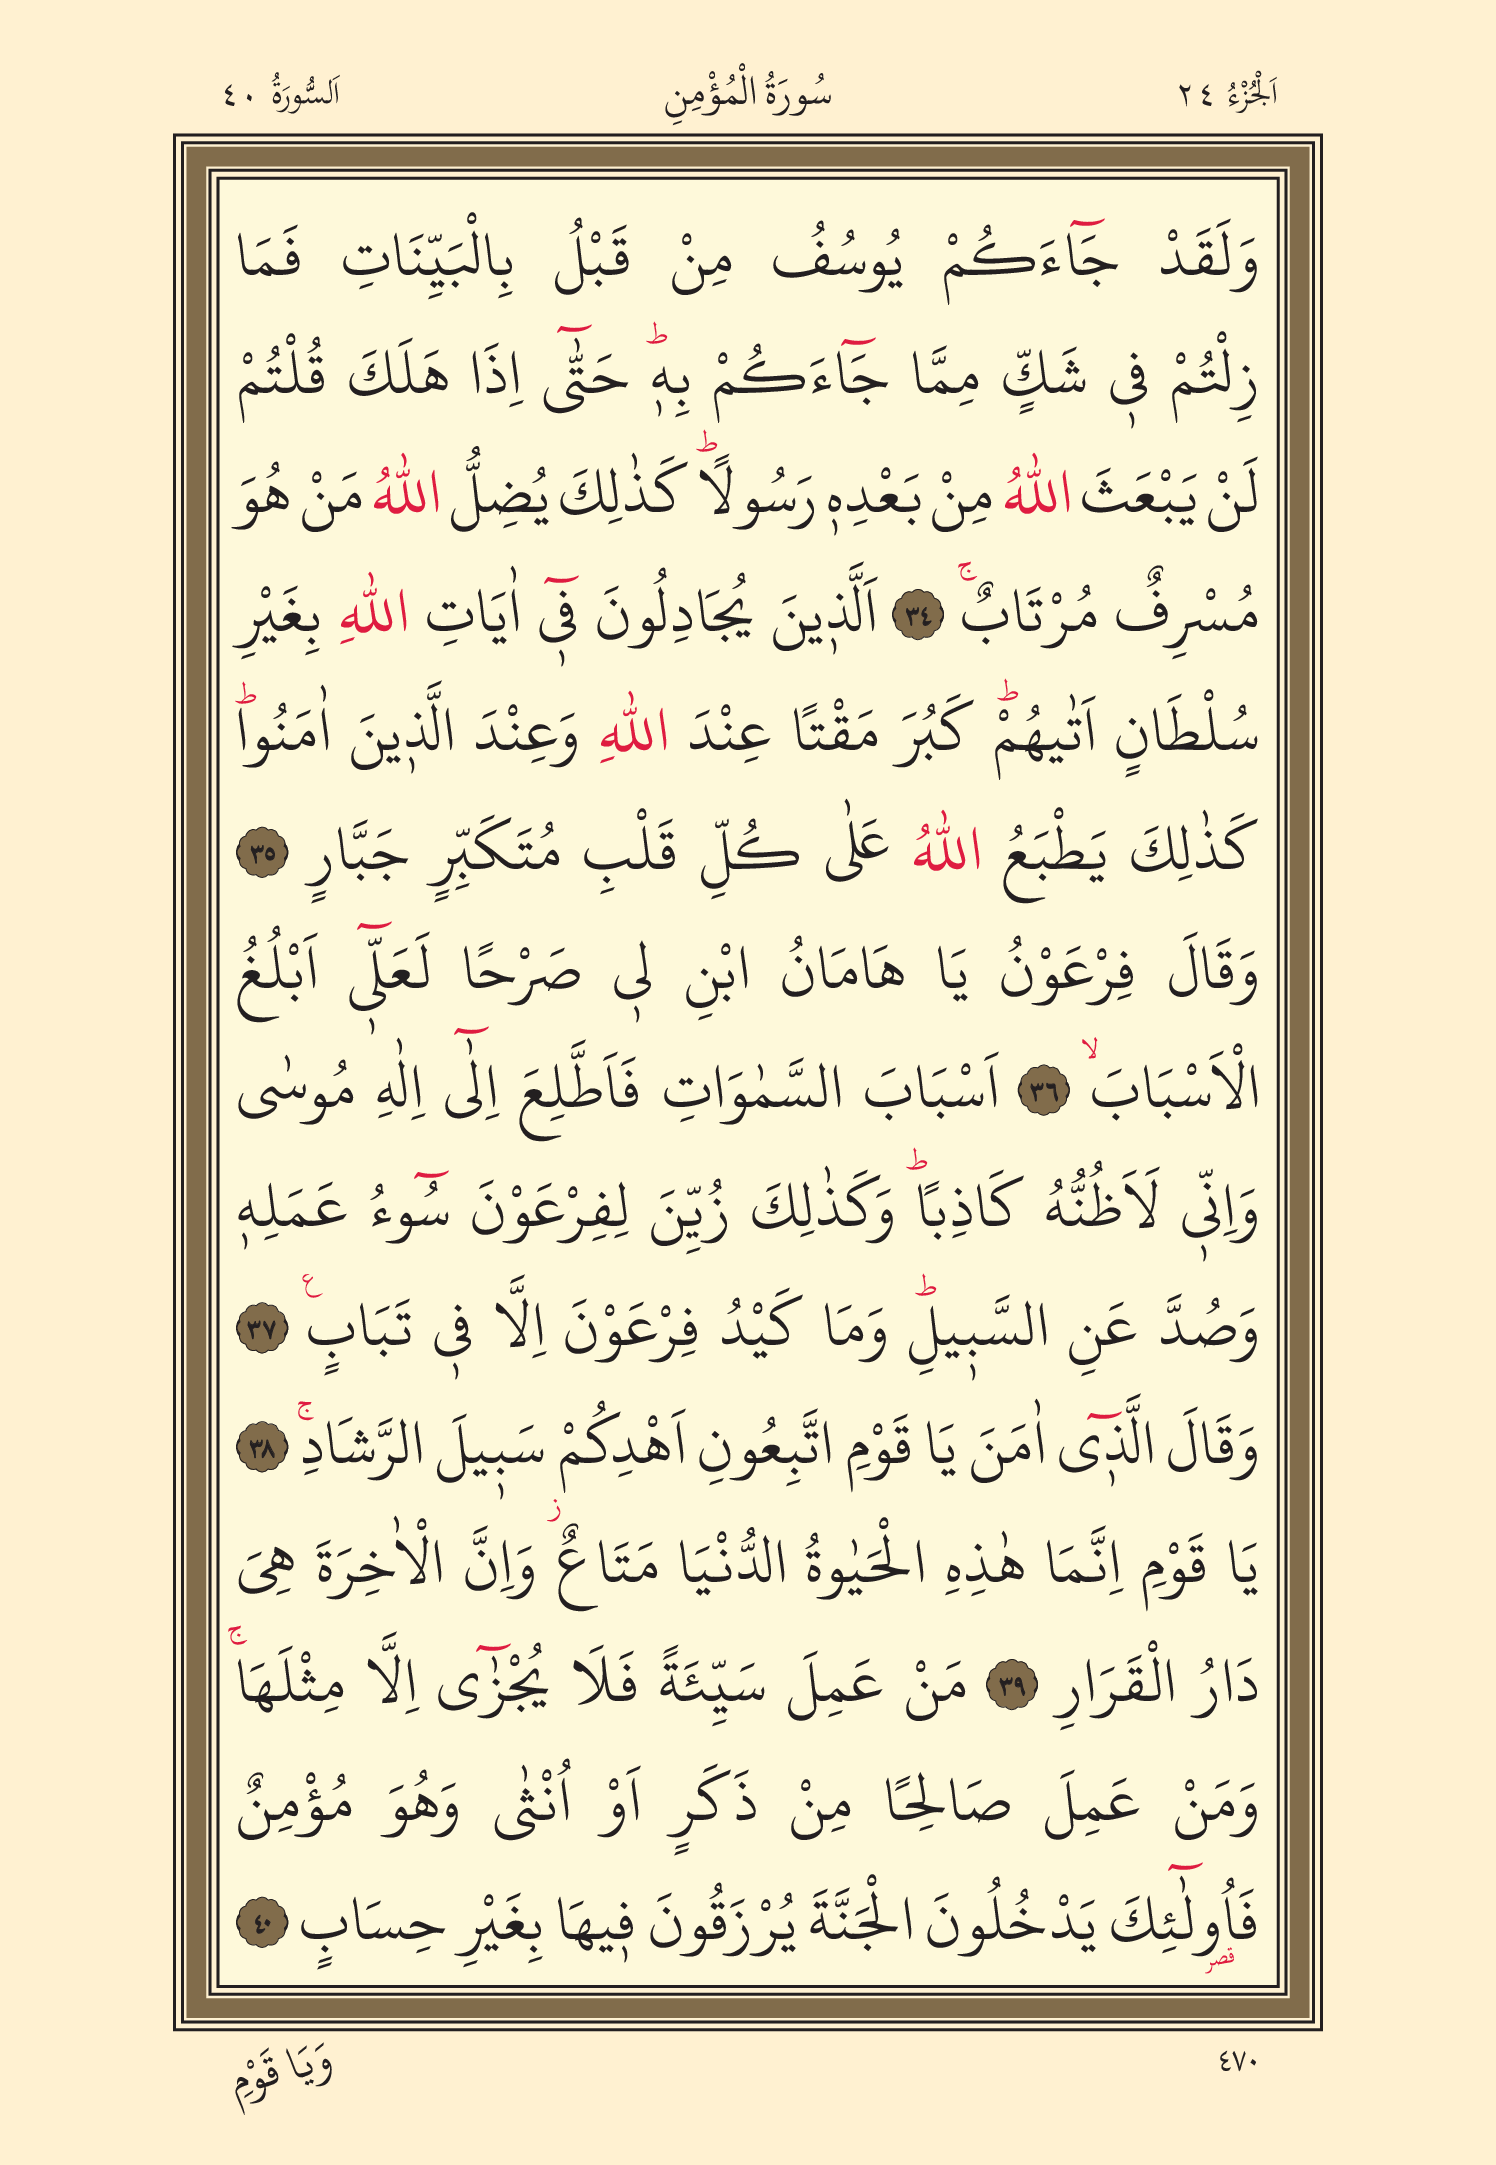 اَلْجُزْءُ ٢٤ سُورَةُ الْمُؤْمِنِ اَلسُّورَةُ ٤٠
وَلَقَدْ جَٓاءَكُمْ يُوسُفُ مِنْ قَبْلُ بِالْبَيِّنَاتِ فَمَا
زِلْتُمْ ف۪ي شَكٍّ مِمَّا جَٓاءَكُمْ بِه۪ۜ حَتّٰٓى اِذَا هَلَكَ قُلْتُمْ
لَنْ يَبْعَثَ اللّٰهُ مِنْ بَعْدِه۪ رَسُولًاۜ كَذٰلِكَ يُضِلُّ اللّٰهُ مَنْ هُوَ
مُسْرِفٌ مُرْتَابٌۚ ﴿٣٤﴾ اَلَّذ۪ينَ يُجَادِلُونَ ف۪ٓي اٰيَاتِ اللّٰهِ بِغَيْرِ
سُلْطَانٍ اَتٰيهُمْۜ كَبُرَ مَقْتًا عِنْدَ اللّٰهِ وَعِنْدَ الَّذ۪ينَ اٰمَنُواۜ
كَذٰلِكَ يَطْبَعُ اللّٰهُ عَلٰى كُلِّ قَلْبِ مُتَكَبِّرٍ جَبَّارٍ ﴿٣٥﴾
وَقَالَ فِرْعَوْنُ يَا هَامَانُ ابْنِ ل۪ي صَرْحًا لَعَلّ۪ٓي اَبْلُغُ
الْاَسْبَابَۙ ﴿٣٦﴾ اَسْبَابَ السَّمٰوَاتِ فَاَطَّلِعَ اِلٰٓى اِلٰهِ مُوسٰى
وَاِنّ۪ي لَاَظُنُّهُ كَاذِبًاۜ وَكَذٰلِكَ زُيِّنَ لِفِرْعَوْنَ سُٓوءُ عَمَلِه۪
وَصُدَّ عَنِ السَّب۪يلِۜ وَمَا كَيْدُ فِرْعَوْنَ اِلَّا ف۪ي تَبَابٍ۟ ﴿٣٧﴾
وَقَالَ الَّذ۪ٓي اٰمَنَ يَا قَوْمِ اتَّبِعُونِ اَهْدِكُمْ سَب۪يلَ الرَّشَادِۚ ﴿٣٨﴾
يَا قَوْمِ اِنَّمَا هٰذِهِ الْحَيٰوةُ الدُّنْيَا مَتَاعٌۘ وَاِنَّ الْاٰخِرَةَ هِيَ
دَارُ الْقَرَارِ ﴿٣٩﴾ مَنْ عَمِلَ سَيِّئَةً فَلَا يُجْزٰٓى اِلَّا مِثْلَهَاۚ
وَمَنْ عَمِلَ صَالِحًا مِنْ ذَكَرٍ اَوْ اُنْثٰى وَهُوَ مُؤْمِنٌ
فَاُو۬لٰٓئِكَ يَدْخُلُونَ الْجَنَّةَ يُرْزَقُونَ ف۪يهَا بِغَيْرِ حِسَابٍ ﴿٤٠﴾
قصر
٤٧٠ وَيَا قَوْمِ